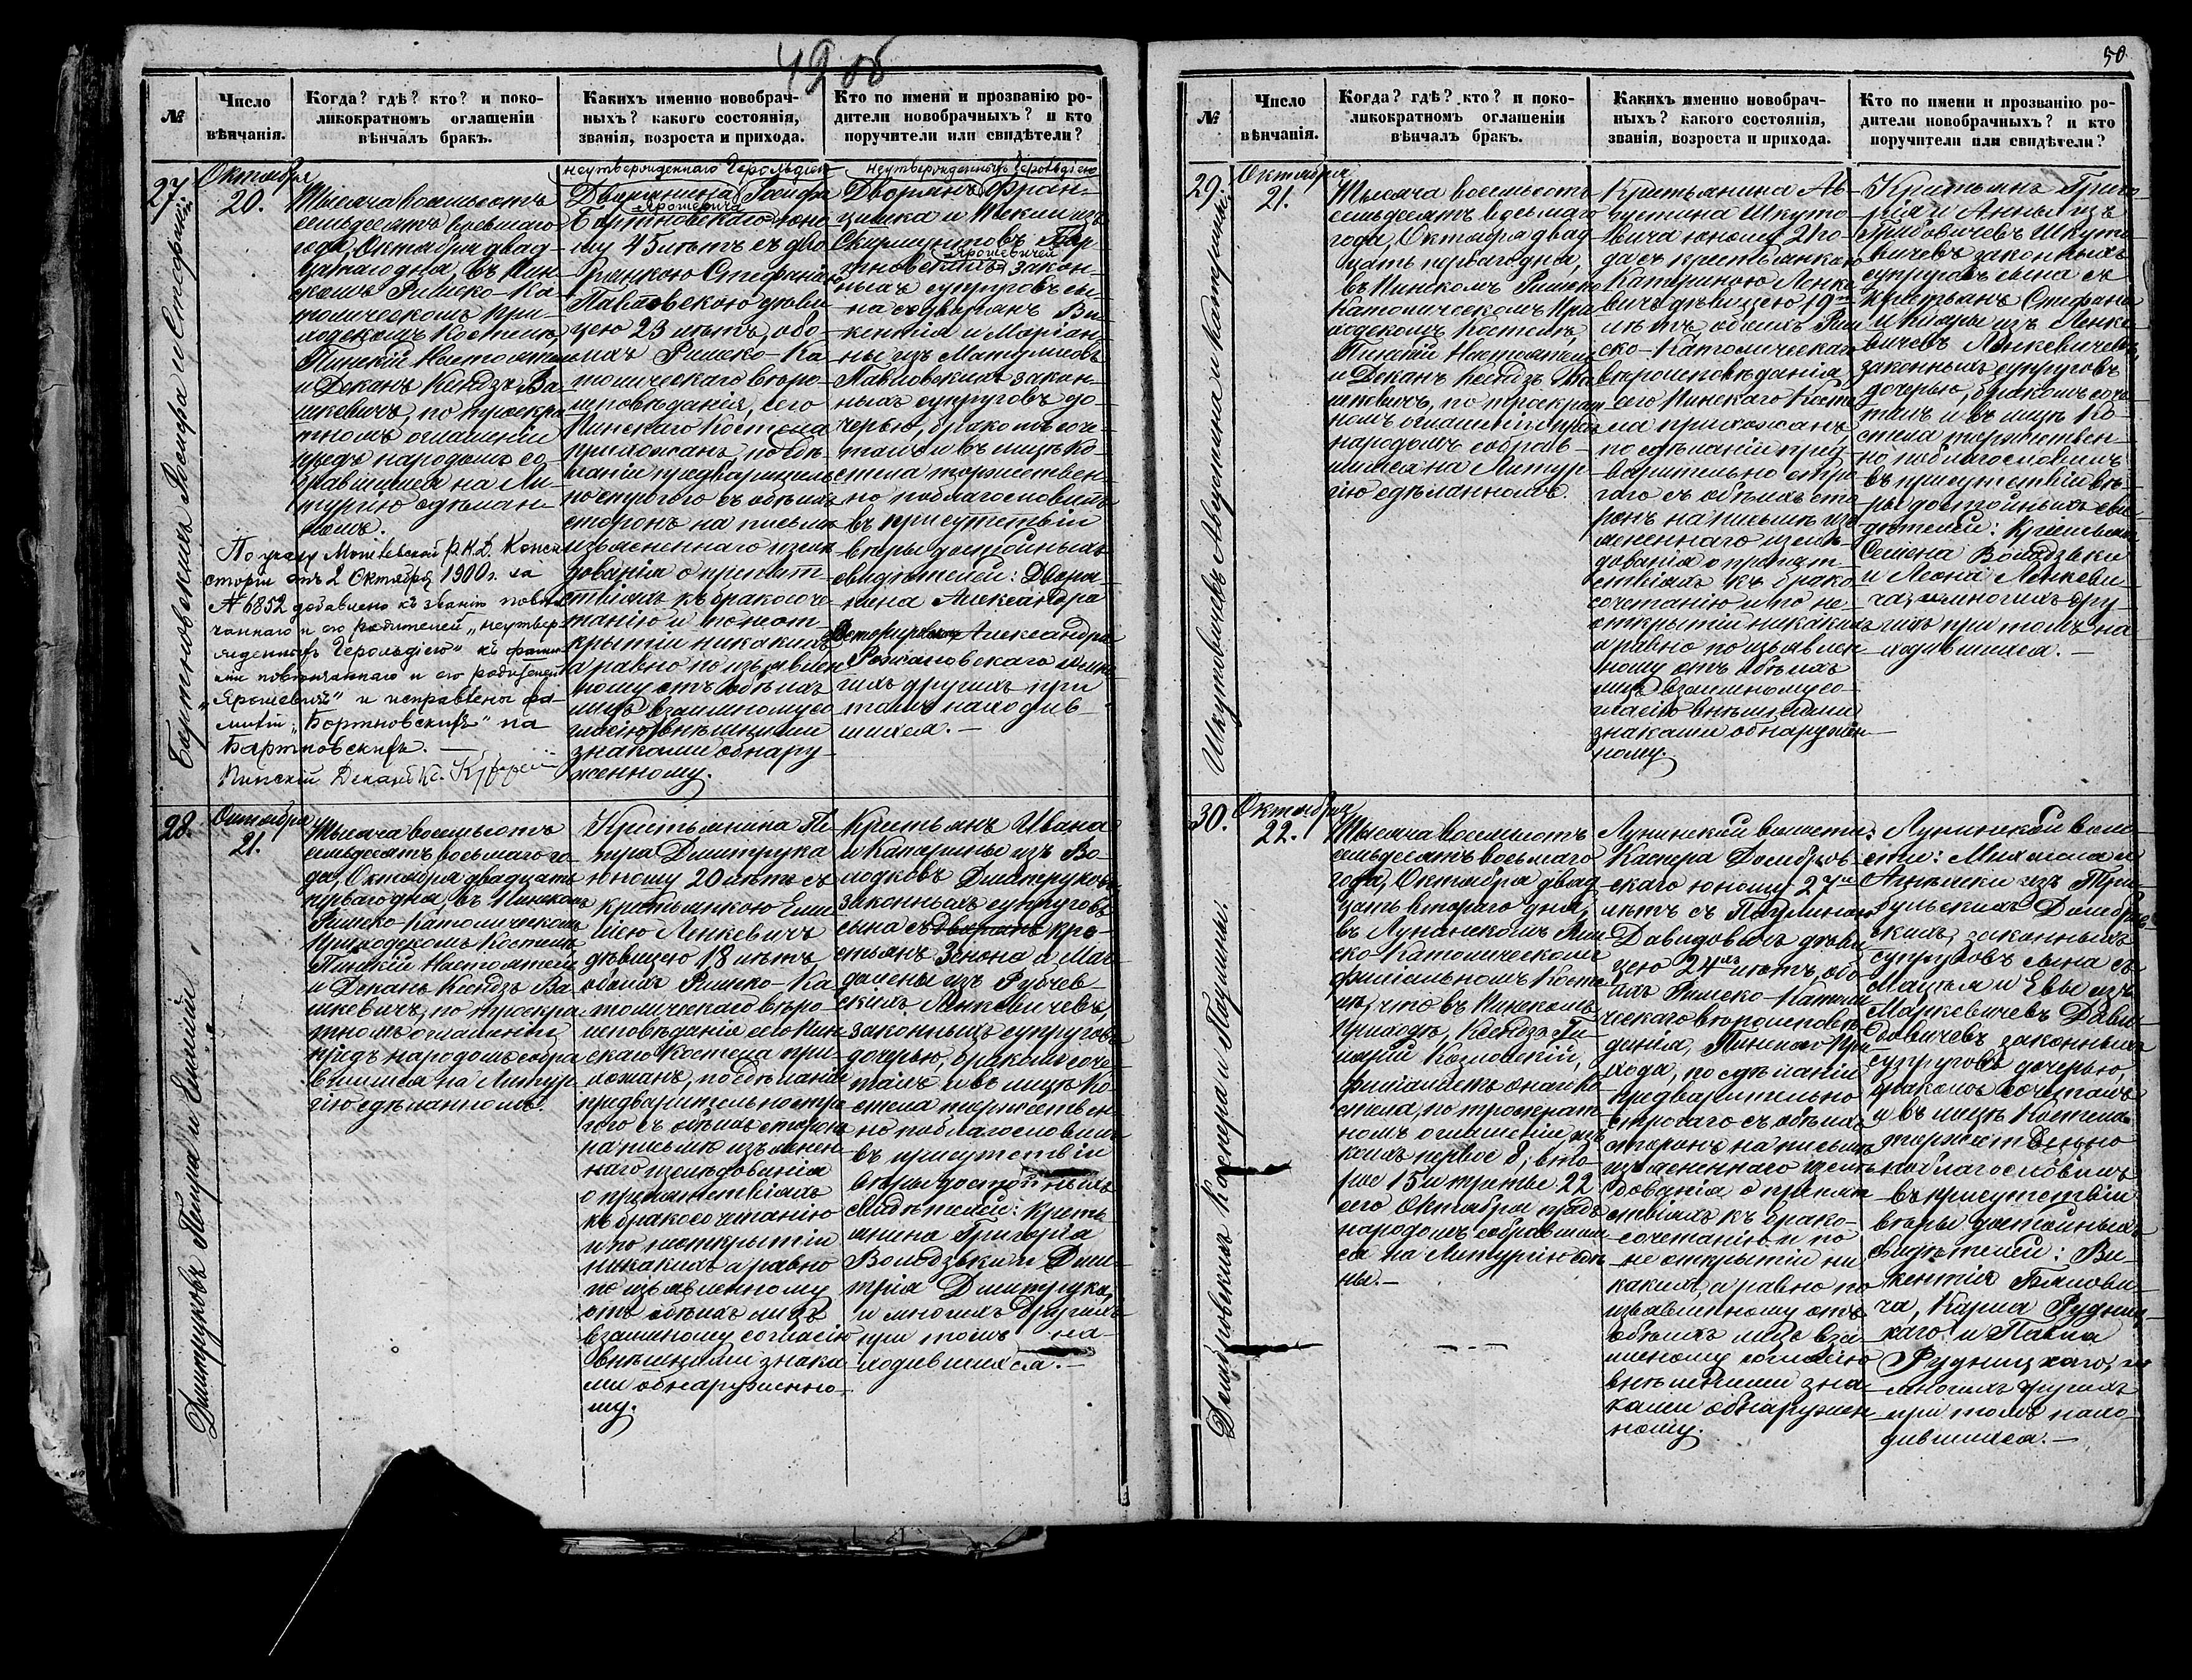 49 об
50
№
Число
вѣнчанія.
Когда? гдѣ? кто? и поко-
ликократномъ оглашеніи
вѣнчалъ бракъ.
Какихъ именно новобрач-
ныхъ? какого состоянія,
званія, возроста и прихода.
Кто по имени и прозванію ро-
дители новобрачныхъ? и кто
поручители или свидѣтели?
27
Октября
20.
Тысяча восемьсотъ
семьдесятъ восьмаго
года, Октября двад-
цатаго дня, въ Пин-
скомъ Римско-Ка-
толическомъ При-
ходскомъ Костелѣ,
Пинскій Настоятель
и Деканъ Ксендзъ Ва-
шкевичъ, по троекра-
тномъ оглашеніи
предъ народомъ со-
бравшимся на Ли-
тургію сдѣлан-
номъ.
По указу Могилевской Р.К.Д. Конси-
сторіи отъ 2 Октября 1900 г. за
№ 6852 добавлено къ званію повѣн-
чаннаго и его родителей „неутвер-
жденныхъ Герольдіею" къ фами-
ліи повѣнчаннаго и его родителей
„Ярошевичъ" и исправлена фа-
милія „Бортновскихъ" на
Бартновскихъ. —
Пинскій Деканъ Кс.
неутвержденнаго Герольдіею
Дворянина Іосифа
Ярошевича
Бартновскаго юно-
шу 45 лѣтъ съ дво-
рянкою Стефаніею
Павловскою дѣви-
цею 23 лѣтъ, обо-
ихъ Римско-Ка-
толическаго вѣро-
исповѣданія, сего
Пинскаго Костела
прихожанъ, по сдѣ-
ланіи предварительно
строгаго съ обѣихъ
сторонъ на письмѣ
изъясненнаго изслѣ-
дованія о препят-
ствіяхъ къ бракосоче-
танію и по неот-
крытіи никакихъ
а равно по изъявлен-
ному отъ обѣихъ
лицъ взаимному со-
гласію внѣшними
знаками обнару-
женному.
неутвержденныхъ Герольдіею
Дворянъ Фран-
цишка и Теклии изъ
Скирмунтовъ Бар-
Ярошевичей
тновскихъ закон-
ныхъ супруговъ сы-
на съ дворянъ Ви-
кентія и Маріан-
ны изъ Матусовъ
Павловскихъ закон-
ныхъ супруговъ до-
черью, бракомъ соче-
талъ и въ лицѣ Ко-
стела торжествен-
но поблагословилъ
въ присутствіи
вѣры достойныхъ
свидѣтелей: Дворя-
нина Александра
Александра
Рожановскаго и мно-
гихъ другихъ при
томъ находив-
шихся. —
Бартновскихъ Іосифа и Стефаніи
28.
Октября
21.
Тысяча восемьсотъ
семьдесятъ восьмаго го-
да, Октября двадцать
перваго дня, въ Пинскомъ
Римско-Католическомъ
Приходскомъ Костелѣ
Пинскій Настоятель
и Деканъ Ксендзъ Ва-
шкевичъ, по троекра-
тномъ оглашеніи
предъ народомъ собра-
вшимся на Литур-
гію сдѣланномъ.
Крестьянина Пе-
тра Дмитрука
юношу 20 лѣтъ съ
крестьянкою Еми-
ліею Ленкевичъ
дѣвицею 18 лѣтъ
обоихъ Римско-Ка-
толическаго вѣро-
исповѣданія сего Пин-
скаго Костела при-
хожанъ, по сдѣланіи
предварительно стро-
гого съ обѣихъ сторонъ
на письмѣ изъяснен-
наго изслѣдованія
о препятствіяхъ
къ бракосочетанію
и по неоткрытіи
никакихъ а равно
по изъявленному
отъ обѣихъ лицъ
взаимному согласію
внѣшними знака-
ми обнаруженно-
му.
Крестьянъ Ивана
и Катарины изъ Во-
лодковъ Дмитруковъ
законныхъ супруговъ
сына съ дворянъ кре-
стьянъ Зенона и Маг-
далены изъ Рубчев-
скихъ Ленкевичевъ
законныхъ супруговъ
дочерью, бракомъ соче-
талъ и въ лицѣ Ко-
стела торжествен-
но поблагословилъ
въ присутствіи
вѣры достойныхъ
свидѣтелей: Кресть-
янина Григорія
Вондзьки и Дми-
трія Дмитрука,
и многихъ другихъ
при томъ на-
ходившихся. —
Дмитруковъ Петра и Емиліи
№
Число
вѣнчанія.
Когда? гдѣ? кто? и поко-
ликократномъ оглашеніи
вѣнчалъ бракъ.
Какихъ именно новобрач-
ныхъ? какого состоянія,
званія, возроста и прихода.
Кто по имени и прозванію ро-
дители новобрачныхъ? и кто
поручители или свидѣтели?
29.
Октября
21.
Тысяча восемьсотъ
семьдесятъ восьмаго
года, Октября двад-
цать перваго дня,
въ Пинскомъ Римско-
Католическомъ При-
ходскомъ Костелѣ,
Пинскій Настоятель
и Деканъ Ксендзъ Ва-
шкевичъ, по троекрат-
номъ оглашеніи предъ
народомъ собрав-
шимся на Литур-
гію сдѣланномъ.
Крестьянина Ав-
густина Шкуто-
вича юношу 21 го-
да съ крестьянкою
Катериною Ленке-
вичъ дѣвицею 19ти
лѣтъ, обоихъ Рим-
ско-Католическаго
вѣроисповѣданія
сего Пинскаго Косте-
ла прихожанъ,
по сдѣланіи пред-
варительно стро-
гаго съ обѣихъ сто-
ронъ на письмѣ изъ-
ясненнаго изслѣ-
дованія о препят-
ствіяхъ къ брако-
сочетанію и по не-
открытіи никакихъ
а равно по изъявлен-
ному отъ обѣихъ
лицъ взаимному со-
гласію внѣшними
знаками обнаружен-
ному.
Крестьянъ Григо-
рія и Анны изъ
Грибовичевъ Шкуто-
вичевъ законныхъ
супруговъ сына съ
крестьянъ Стефана
и Клары изъ Ленке-
вичевъ Ленкевичевъ
законныхъ супруговъ
дочерью, бракомъ соче-
талъ и въ лицѣ Ко-
стела торжествен-
но поблагословилъ
въ присутствіи вѣ-
ры достойныхъ сви-
дѣтелей: Крестьянъ
Семена Вондзьки
и Леона Ленкеви-
ча, и многихъ дру-
гихъ при томъ на-
ходившихся. —
Шкутовичевъ Августина и Катерины.
30.
Октября
22.
Тысяча восемьсотъ
семьдесятъ восьмаго
года, Октября двад-
цать втораго дня,
въ Лунинскомъ Рим-
ско-Католическомъ
филіальномъ Косте-
лѣ, что въ Пинскомъ
приходѣ, Ксендзъ
Козловскій,
филіалистъ онаго Ко-
стела, по троекрат-
номъ оглашеніи, изъ
коихъ первое 8, вто-
рое 15 и третье 22
сего Октября предъ
народомъ собравшим-
ся на Литургію сдѣ-
ны. —
Лунинской волости:
Каспера Домбров-
скаго юношу 27и
лѣтъ съ Паулиною
Давидовичъ дѣви-
цею 24хъ лѣтъ, обо-
ихъ Римско-Католи-
ческаго вѣроисповѣ-
данія, Пинскаго При-
хода, по сдѣланіи
предварительно
строгаго съ обѣихъ
сторонъ на письмѣ
изъясненнаго изслѣ-
дованія о препят-
ствіяхъ къ брако-
сочетанію и по
не открытіи ни-
какихъ, а равно по
изъявленному отъ
обѣихъ лицъ вза-
имному согласію
внѣшними зна-
ками обнаружен-
ному.
Лунинской воло-
сти: Михаила и
Агнешки изъ
Домбров-
скихъ, законныхъ
супруговъ сына съ
Мацея и Евы изъ
Маркевичевъ Дави-
довичевъ законныхъ
супруговъ дочерью,
бракомъ сочеталъ
и въ лицѣ Костела
торжественно
поблагословилъ
въ присутствіи
вѣры достойныхъ
свидѣтелей: Ви-
кентія
ча, Карла Рудниц-
каго и Павла
Рудницкаго, и
многихъ другихъ
при томъ нахо-
дившихся. —
Домбровскихъ Каспера и Паулины.